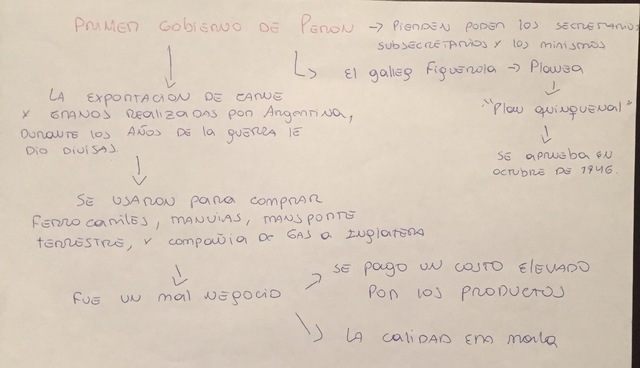 PRIMER GOBIERNO DE PERON → PIERDEN PODER LOS SECRETARIOS
SUBSECRETARIOS Y LOS MINISTROS
EL galleg Figuerola → Planea
"Plan quinquenal"
SE APRUEBA EN
OCTUBRE DE 1946.
LA EXPORTACION DE CARNE
Y GRANOS REALIZADAS POR ARgENTINA,
DURANTE LOS AÑOS DE LA gUERRA LE
DIO DIVISAS.
SE USARON PARA COMPRAR
FERROCARRILES, TRANVIAS, TRANSPORTE
TERRESTRE, Y COMPAÑIA DE GAS A INglATERRA
FUE UN mal NEgOCIO
SE PAgO UN COSTO ElEVADO
POR LOS PRODUCTOS
LA CAlIDAD ERA mala